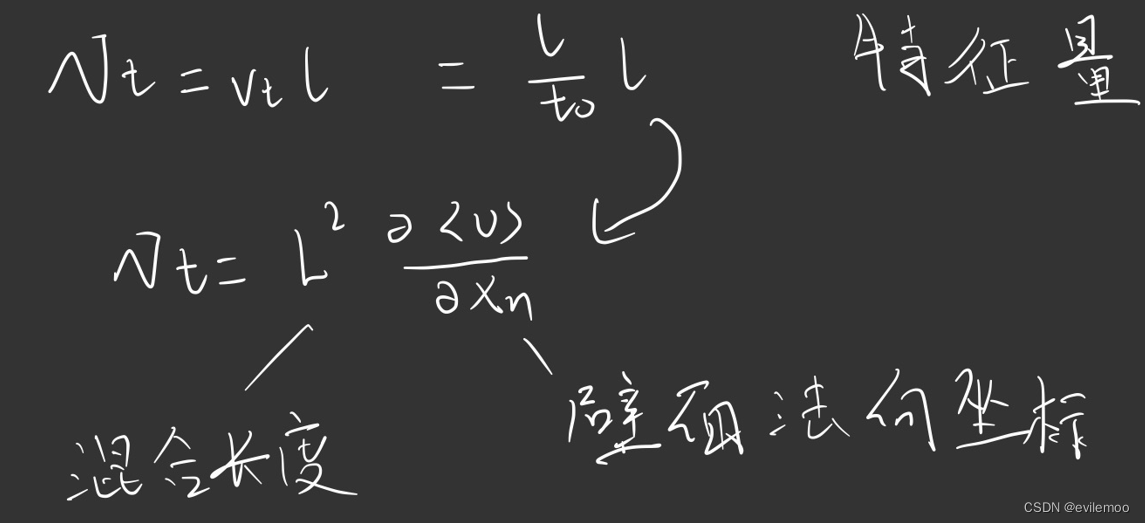 νt = vt l = l/t0 l 特征量
νt = L² ∂<U>/∂xn
混合长度 壁面法向坐标
CSDN @evilemoo